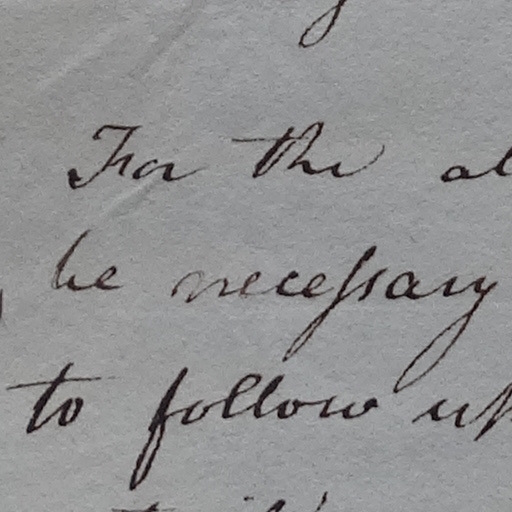 For the
be neceſsary
to follow